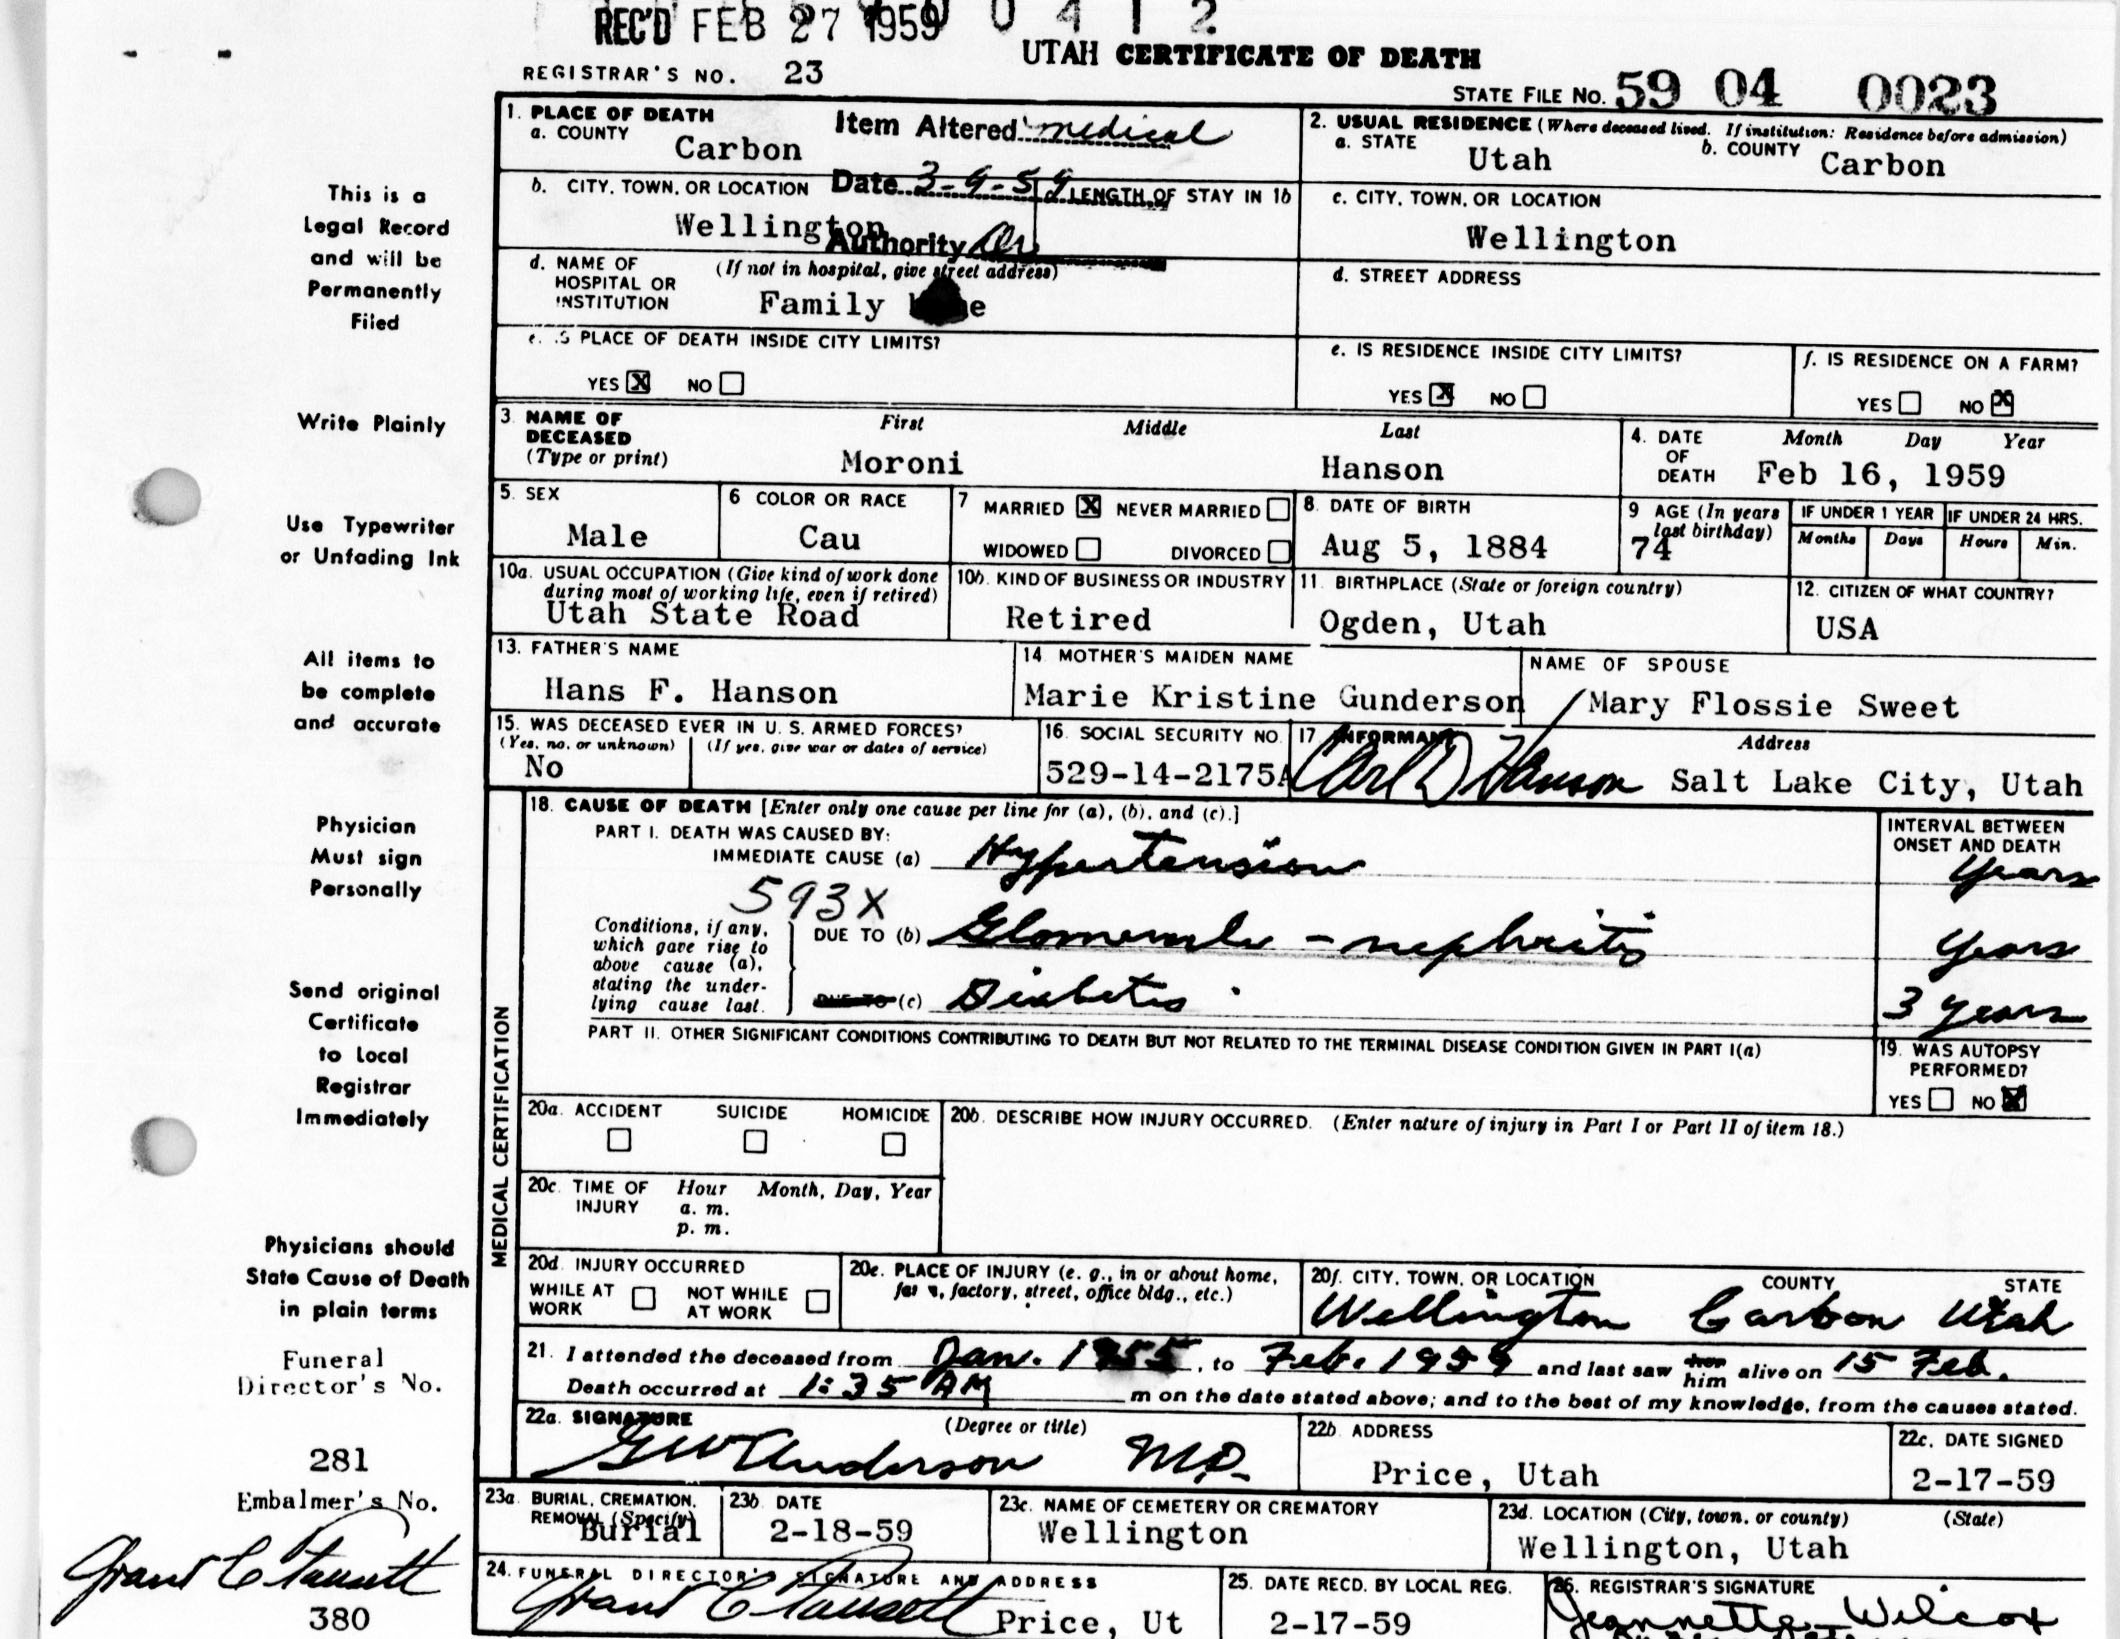 REC'D FEB 27 1959 0 4 1 2
UTAH CERTIFICATE OF DEATH
REGISTRAR'S NO. 23
STATE FILE NO. 59 04 0023
1. PLACE OF DEATH
a. COUNTY
Carbon
Item Altered medical
2. USUAL RESIDENCE (Where deceased lived. If institution: Residence before admission)
a. STATE
Utah
b. COUNTY
Carbon
This is a
Legal Record
and will be
Permanently
Filed
b. CITY, TOWN, OR LOCATION
Wellington
Date 3-9-59
LENGTH OF STAY IN 1b
Authority
c. CITY, TOWN, OR LOCATION
Wellington
d. NAME OF HOSPITAL OR INSTITUTION
(If not in hospital, give street address)
Family
d. STREET ADDRESS
IS PLACE OF DEATH INSIDE CITY LIMITS?
YES X NO
e. IS RESIDENCE INSIDE CITY LIMITS?
YES X NO
f. IS RESIDENCE ON A FARM?
YES NO X
Write Plainly
3. NAME OF
DECEASED
(Type or print)
First Middle Last
Moroni Hanson
4. DATE
OF
DEATH
Month Day Year
Feb 16, 1959
Use Typewriter
or Unfading Ink
5. SEX
Male
6 COLOR OR RACE
Cau
7 MARRIED X NEVER MARRIED
WIDOWED DIVORCED
8. DATE OF BIRTH
Aug 5, 1884
9 AGE (In years
last birthday)
74
IF UNDER 1 YEAR
Months Days
IF UNDER 24 HRS.
Hours Min.
10a. USUAL OCCUPATION (Give kind of work done
during most of working life, even if retired)
Utah State Road
10b. KIND OF BUSINESS OR INDUSTRY
Retired
11. BIRTHPLACE (State or foreign country)
Ogden, Utah
12. CITIZEN OF WHAT COUNTRY?
USA
All items to
be complete
and accurate
13. FATHER'S NAME
Hans F. Hanson
14. MOTHER'S MAIDEN NAME
Marie Kristine Gunderson
NAME OF SPOUSE
Mary Flossie Sweet
15. WAS DECEASED EVER IN U. S. ARMED FORCES?
(Yes, no, or unknown) (If yes, give war or dates of service)
No
16. SOCIAL SECURITY NO.
529-14-2175A
17 INFORMANT
Carl D Hanson
Address
Salt Lake City, Utah
Physician
Must sign
Personally
MEDICAL CERTIFICATION
18. CAUSE OF DEATH [Enter only one cause per line for (a), (b), and (c).]
PART I. DEATH WAS CAUSED BY:
IMMEDIATE CAUSE (a) Hypertension
INTERVAL BETWEEN
ONSET AND DEATH
Years
593X
Conditions, if any,
which gave rise to
above cause (a),
stating the under-
lying cause last.
DUE TO (b) Glomerulo - nephritis
Years
DUE TO (c) Diabetes
3 years
Send original
Certificate
to Local
Registrar
Immediately
PART II. OTHER SIGNIFICANT CONDITIONS CONTRIBUTING TO DEATH BUT NOT RELATED TO THE TERMINAL DISEASE CONDITION GIVEN IN PART I(a)
19. WAS AUTOPSY
PERFORMED?
YES NO X
20a. ACCIDENT SUICIDE HOMICIDE
20b. DESCRIBE HOW INJURY OCCURRED. (Enter nature of injury in Part I or Part II of item 18.)
20c. TIME OF
INJURY
Hour Month, Day, Year
a. m.
p. m.
Physicians should
State Cause of Death
in plain terms
20d. INJURY OCCURRED
WHILE AT
WORK
NOT WHILE
AT WORK
20e. PLACE OF INJURY (e. g., in or about home,
factory, street, office bldg., etc.)
20f. CITY, TOWN, OR LOCATION COUNTY STATE
Wellington Carbon Utah
21. I attended the deceased from Jan. 1955, to Feb. 1959 and last saw her him alive on 15 Feb.
Death occurred at 1:35 AM m on the date stated above; and to the best of my knowledge, from the causes stated.
Funeral
Director's No.
281
22a. SIGNATURE (Degree or title)
G W Anderson M.D.
22b. ADDRESS
Price, Utah
22c. DATE SIGNED
2-17-59
Embalmer's No.
380
23a. BURIAL, CREMATION,
REMOVAL (Specify)
Burial
23b. DATE
2-18-59
23c. NAME OF CEMETERY OR CREMATORY
Wellington
23d. LOCATION (City, town, or county) (State)
Wellington, Utah
24. FUNERAL DIRECTOR'S SIGNATURE AND ADDRESS
Price, Ut
25. DATE RECD. BY LOCAL REG.
2-17-59
26. REGISTRAR'S SIGNATURE
Jeannette Wilcox